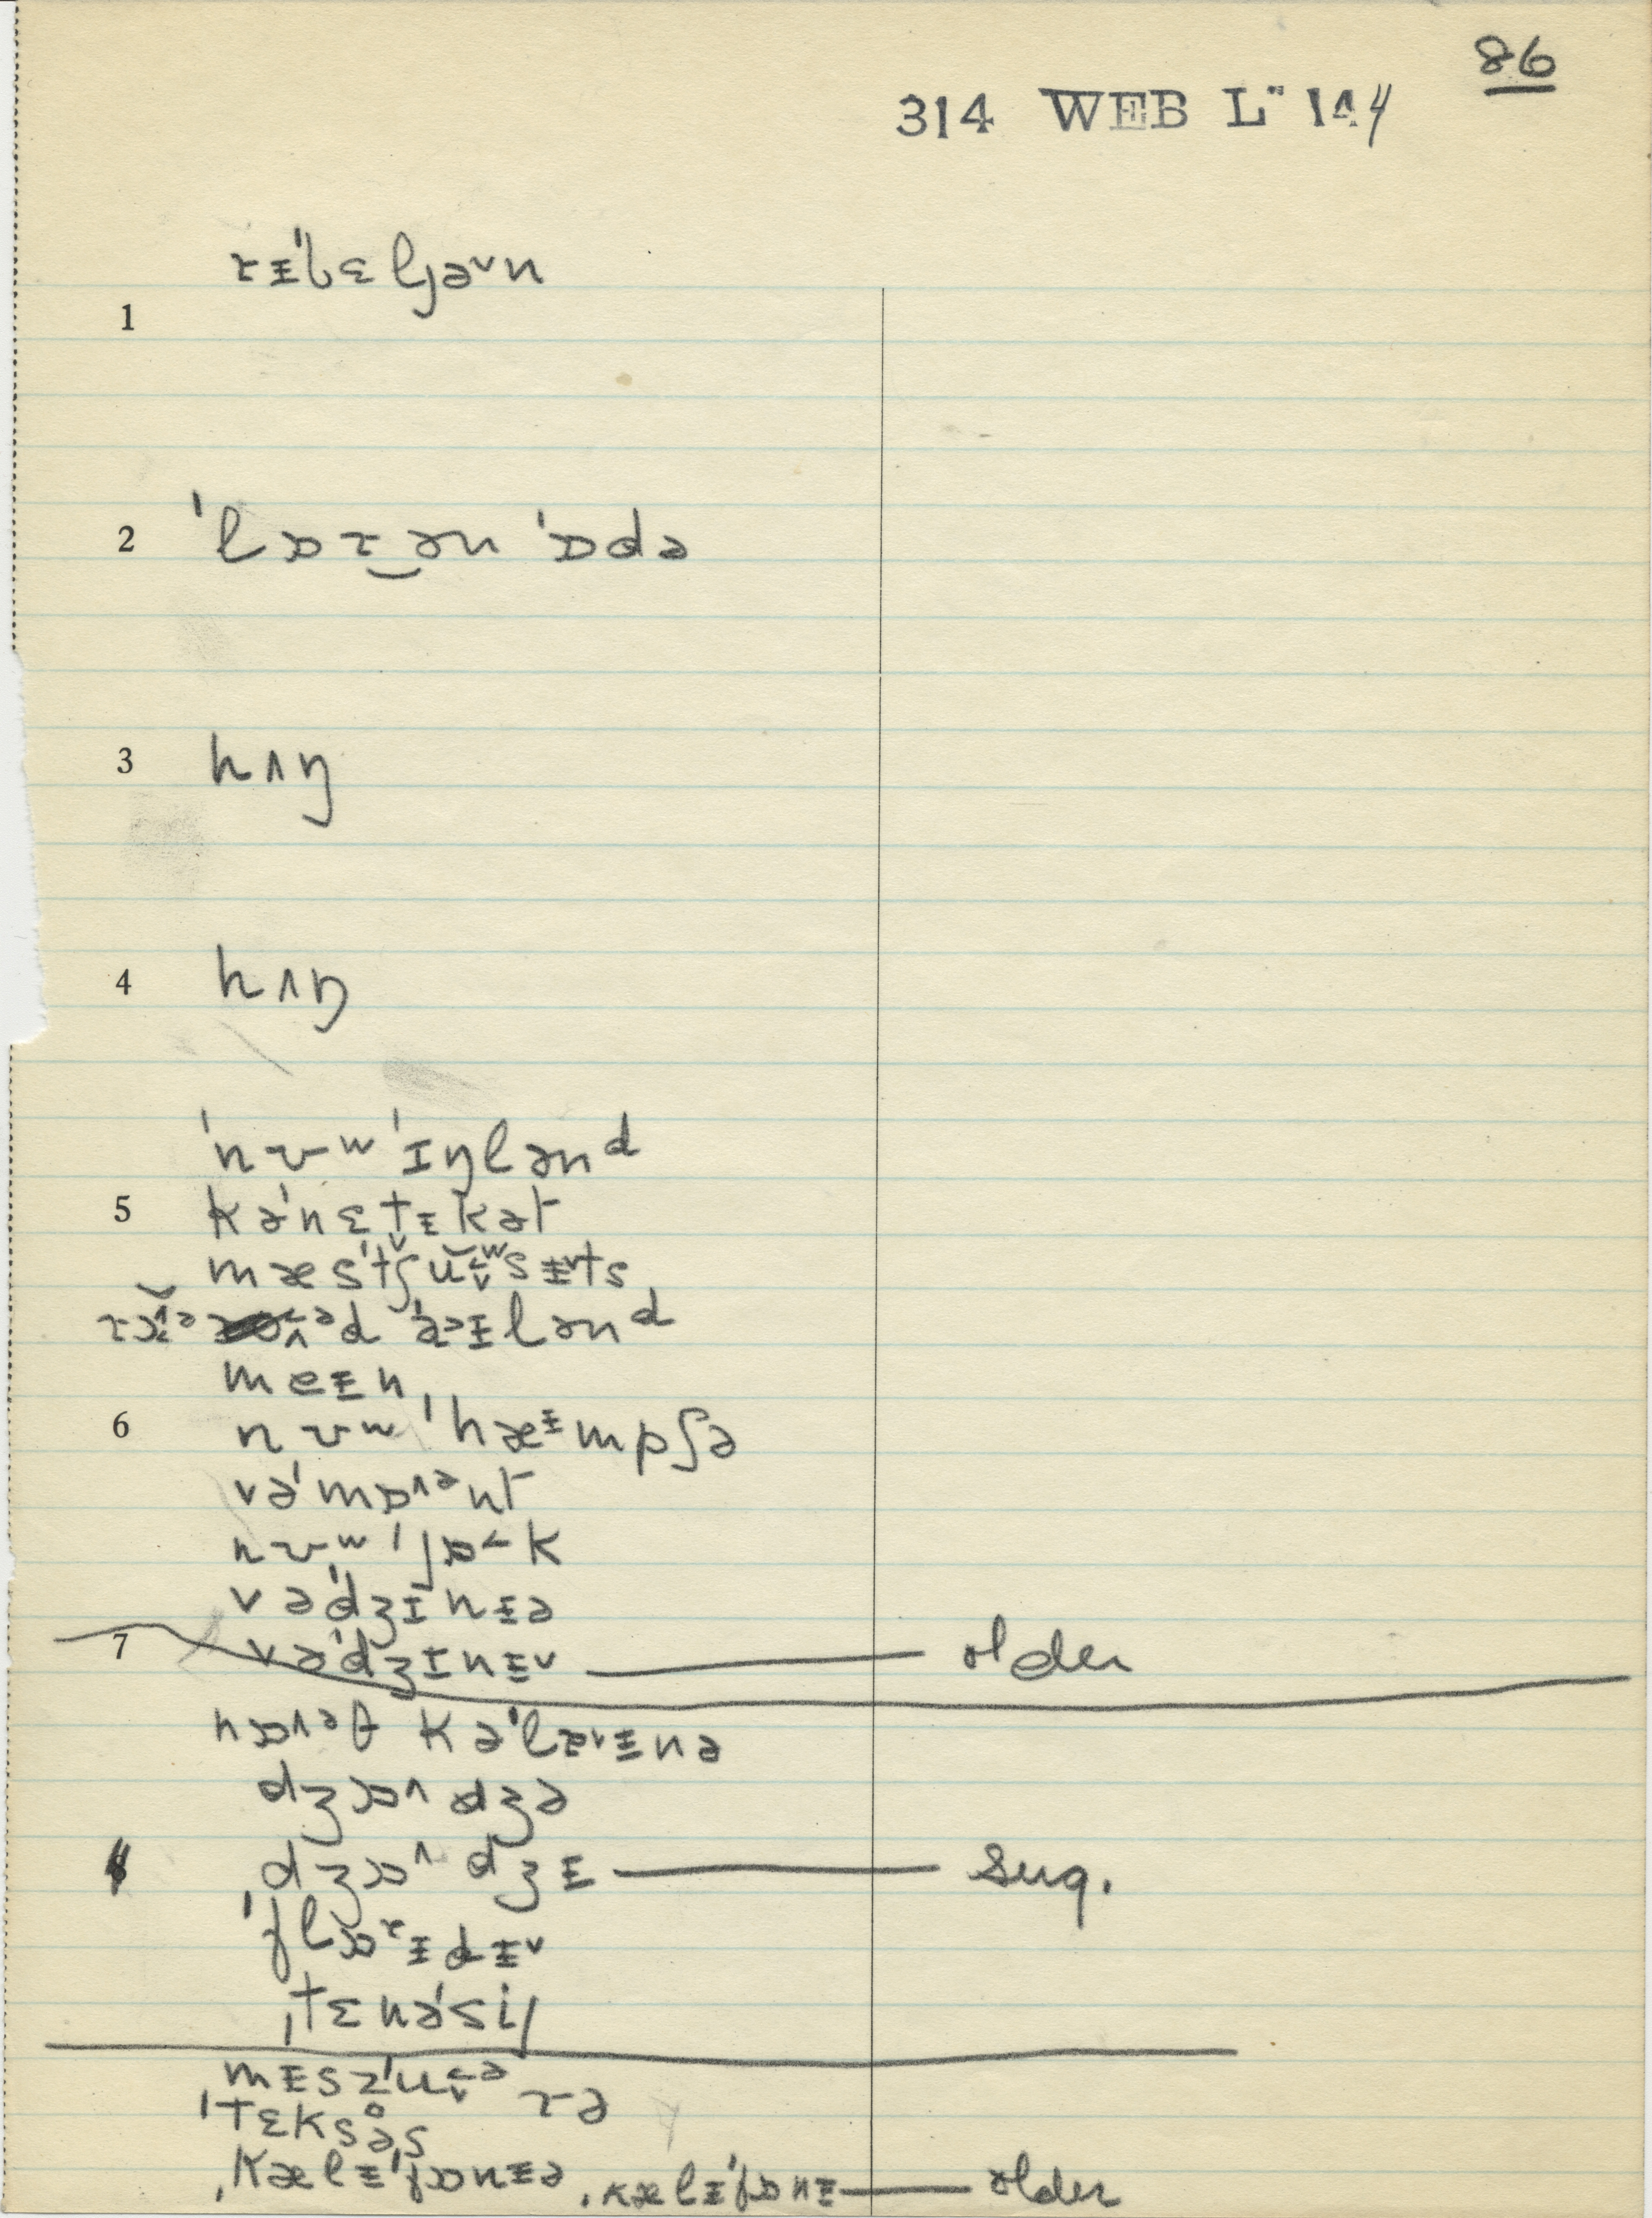 86
314 WEB L" 144
1 ɾᵻˈbɛljəᵛn
2 ˈlɒɾ‿ən ˈɒdə
3 hʌŋ
4 hʌŋ
ˈnʊʷˈɪŋlənᵈ
5 kəˈnɛtᵻkət
mæsˈtʃu˂ʷsᵻᵛts
d ˈaᵊᵻlənᵈ
meᵻn
6 nʊʷˈhæᵻmpʃə
vəˈmɒ˄ᵊnt
nʊʷˈjɒ˂k
vəˈdʒɪnᵻə
7 vəˈdʒɪnᵻᵛ — older
nɒ˄ᵊθ kəˈlaᵛᵻnə
dʒɒ˄dʒə
dʒɒ˄dʒᵻ — sug.
ˈflɒɾᵻdᵻᵛ
ˌtɛnəˈsi
mᵻsˈzu˂ᵊɾə
ˈtɛksəs
ˌkælᵻˈfɒnᵻə ˌkælᵻˈfɒnᵻ — older